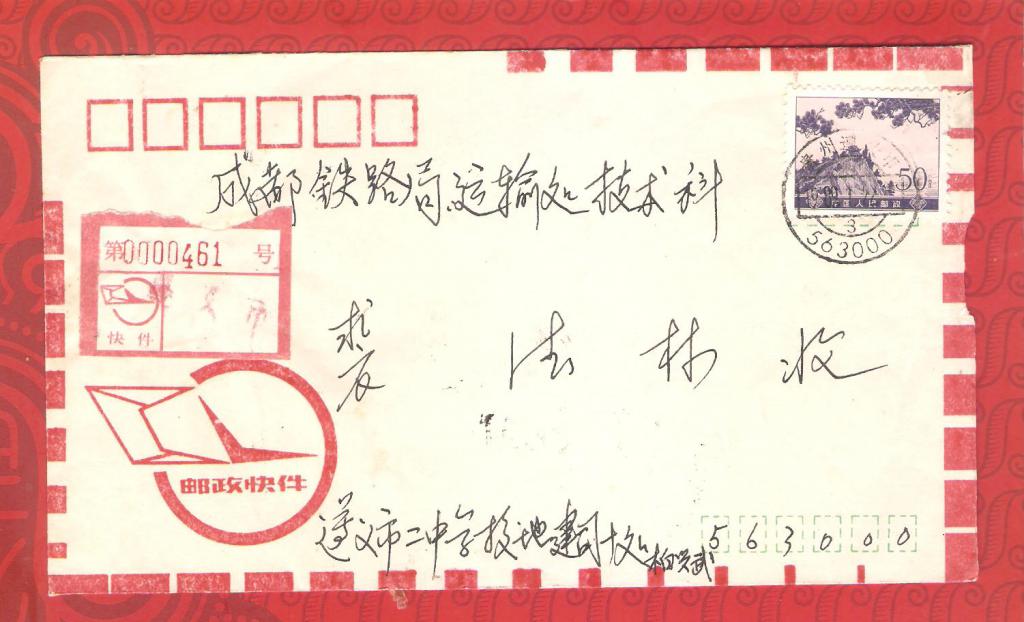 成都铁路局运输处技术科
50
中国人民邮政
3
563000
第0000461号
快件
裘 法 林 收
邮政快件
遵义市二中学校地建司
563000